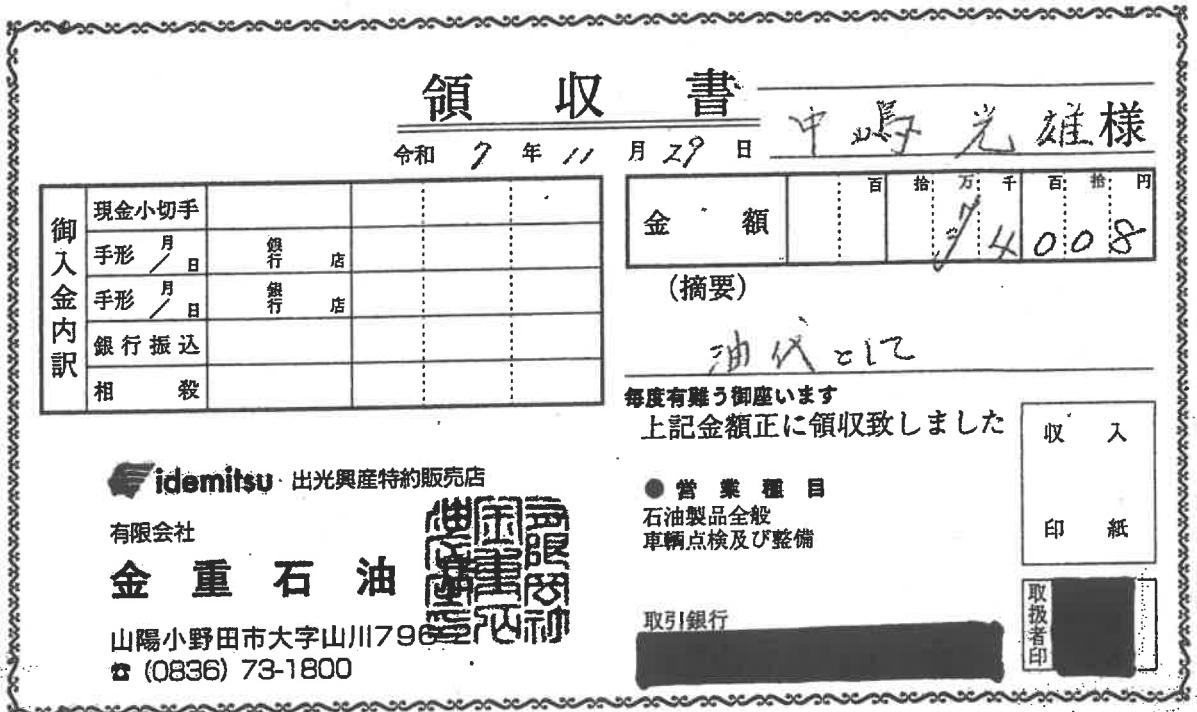 領収書
中嶋光雄様
令和 7 年 11 月 29 日
御入金内訳
現金小切手
手形 月/日 銀行 店
手形 月/日 銀行 店
銀行振込
相殺
金額
百 拾 万 千 百 拾 円
4 0 0 8
(摘要)
油代として
毎度有難う御座います
上記金額正に領収致しました
収入
印紙
idemitsu 出光興産特約販売店
有限会社
金重石油
山陽小野田市大字山川796
☎ (0836) 73-1800
● 営業種目
石油製品全般
車輌点検及び整備
取引銀行
取扱者印